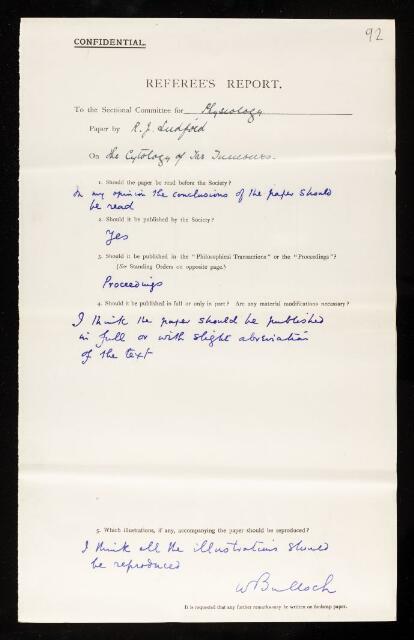 92
CONFIDENTIAL.
REFEREE'S REPORT.
To the Sectional Committee for Physiology
Paper by R. J. Ludford
On The Cytology of Tar Tumours.
1. Should the paper be read before the Society?
In my opinion the conclusions of the paper should
be read
2. Should it be published by the Society?
Yes
3. Should it be published in the "Philosophical Transactions" or the "Proceedings"?
(See Standing Orders on opposite page.)
Proceedings
4. Should it be published in full or only in part? Are any material modifications necessary?
I think the paper should be published
in full or with slight abbreviation
of the text
5. Which illustrations, if any, accompanying the paper should be reproduced?
I think all the illustrations should
be reproduced
W Bulloch
It is requested that any further remarks may be written on foolscap paper.